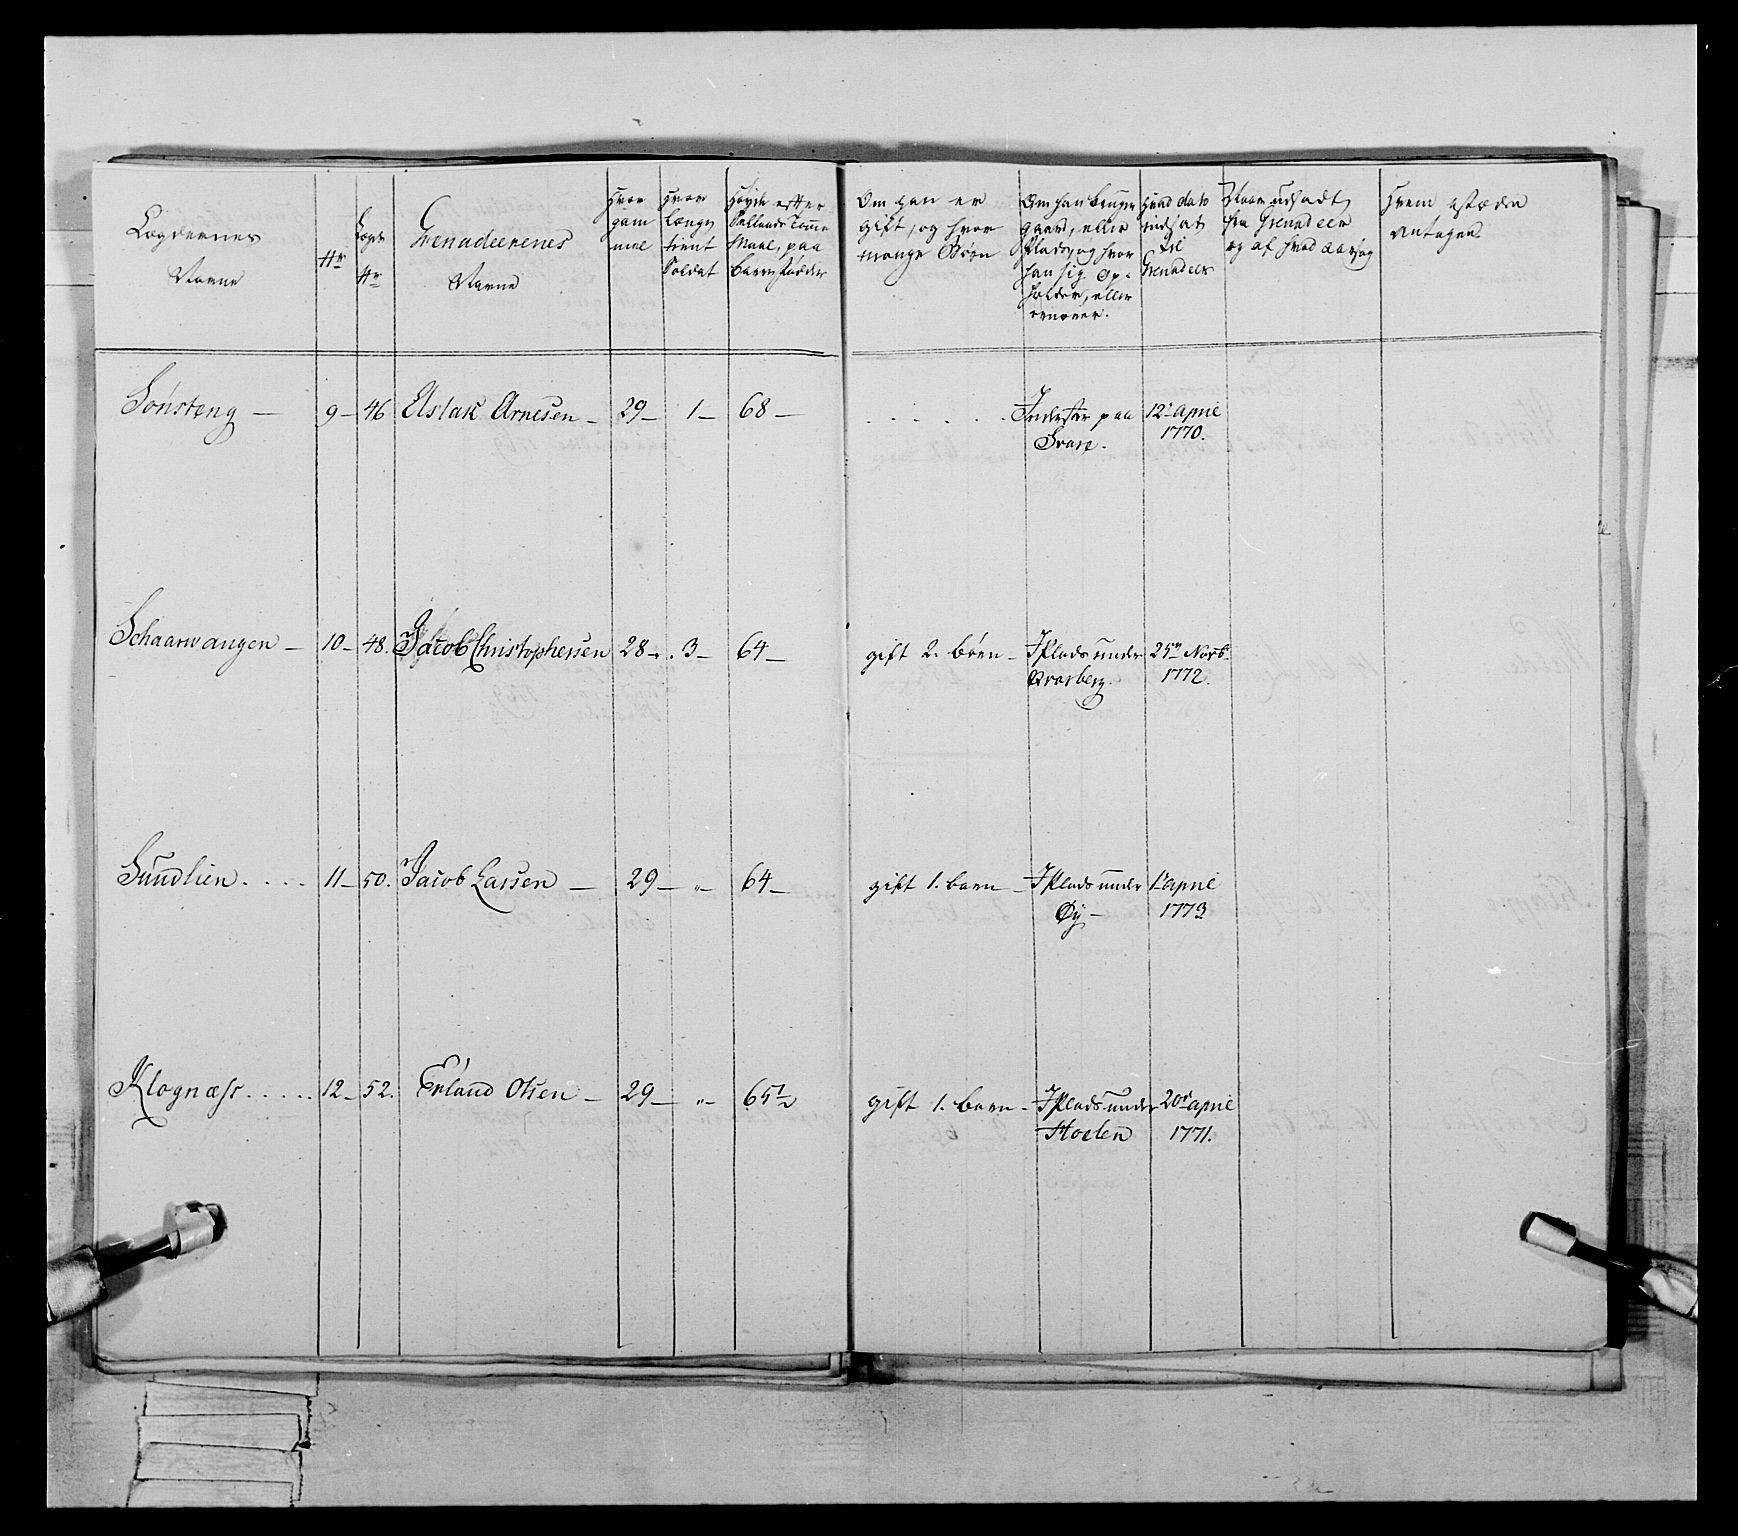 Lægdernes
Navne
Nr
Lægds
Nr
Grenadeerenes
Navne
Hvor
gam
mel
Hvor
længe
tient
Soldat
Høyde efter
Sellands Tomme
Maal, paa
barre fødder
Om han er
gift, og hvor
mange Børn
Om han bruger
gaard, eller
Plads, og hvor
han sig op-
holder, eller
ernærer.
Hvad dato
indsat
til
Grenadeer
Naar udsadt
fra Grenadeer
og af hvad aarsag
Hvem istæden
Antagen
Sønsteng — 9 — 46 Aslak Arnesen — 29 — 1 — 68 — . . . . . Inderster paa 12te April
1770.
Schaarwangen — 10 — 48. Jacob Christophersen 28 — . 3 — 64 — gift 2. børn — J Plads under 25de Novb
1772.
Suudlien . . . . 11 — 50. Jacob Larsen — 29 — " — 64 — gift 1. barn — J Plads under 1te april
Øy — 1773
Klognæss . . . . . 12 — 52. Erland Olsen — 29 — " — 65 1/2 gift 1. barn — J Plads under 20de april
Hoelen 1771.